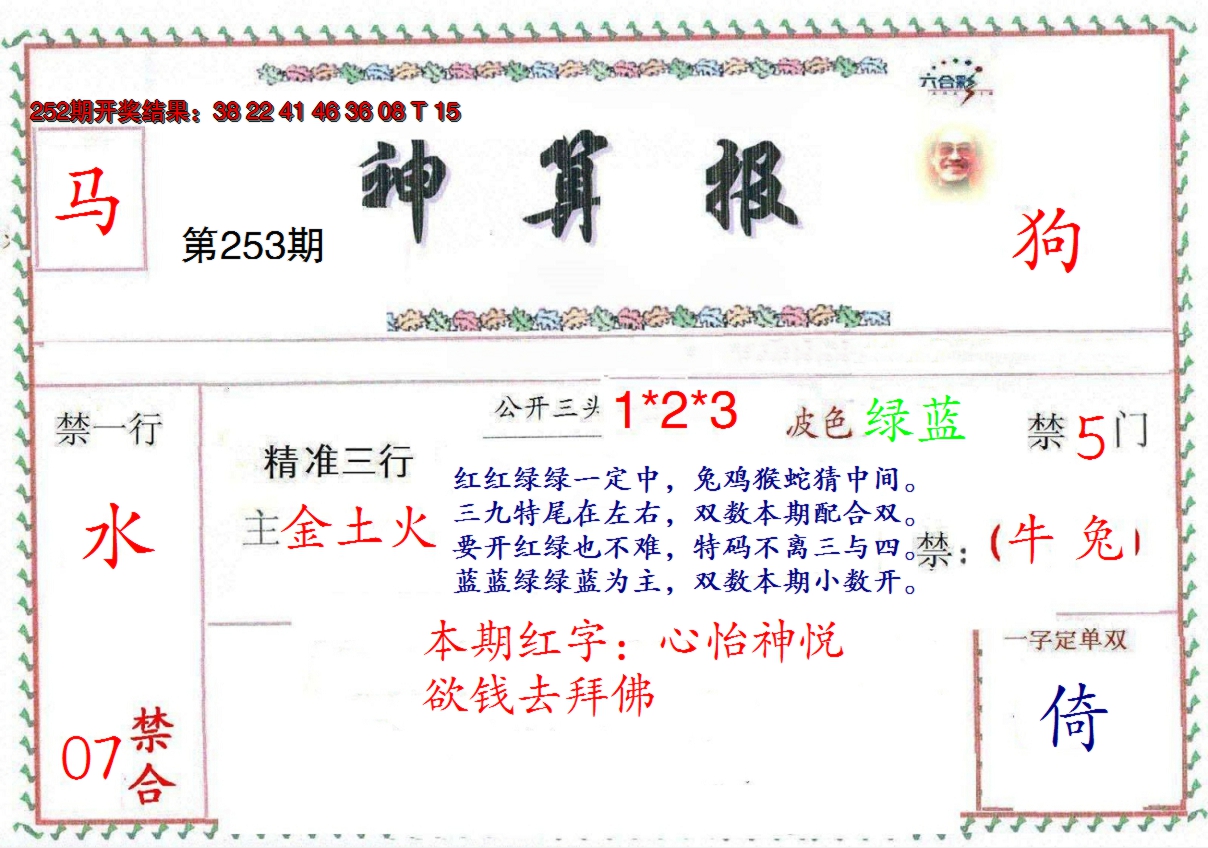 六合彩
252期开奖结果：38 22 41 46 36 08 T 15
神算报
马
第253期
狗
禁一行
水
07禁合
公开三头 1*2*3
波色 绿蓝
禁5门
精准三行
主金土火
红红绿绿一定中，兔鸡猴蛇猜中间。
三九特尾在左右，双数本期配合双。
要开红绿也不难，特码不离三与四。
蓝蓝绿绿蓝为主，双数本期小数开。
禁：(牛 兔)
本期红字：心怡神悦
欲钱去拜佛
一字定单双
倚